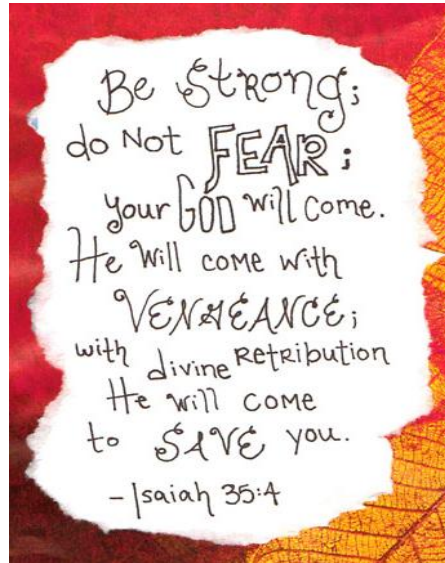 Be Strong;
do Not FEAR;
your GOD will come.
He will come with
VENGEANCE;
with divine Retribution
He will come
to SAVE you.
- Isaiah 35:4